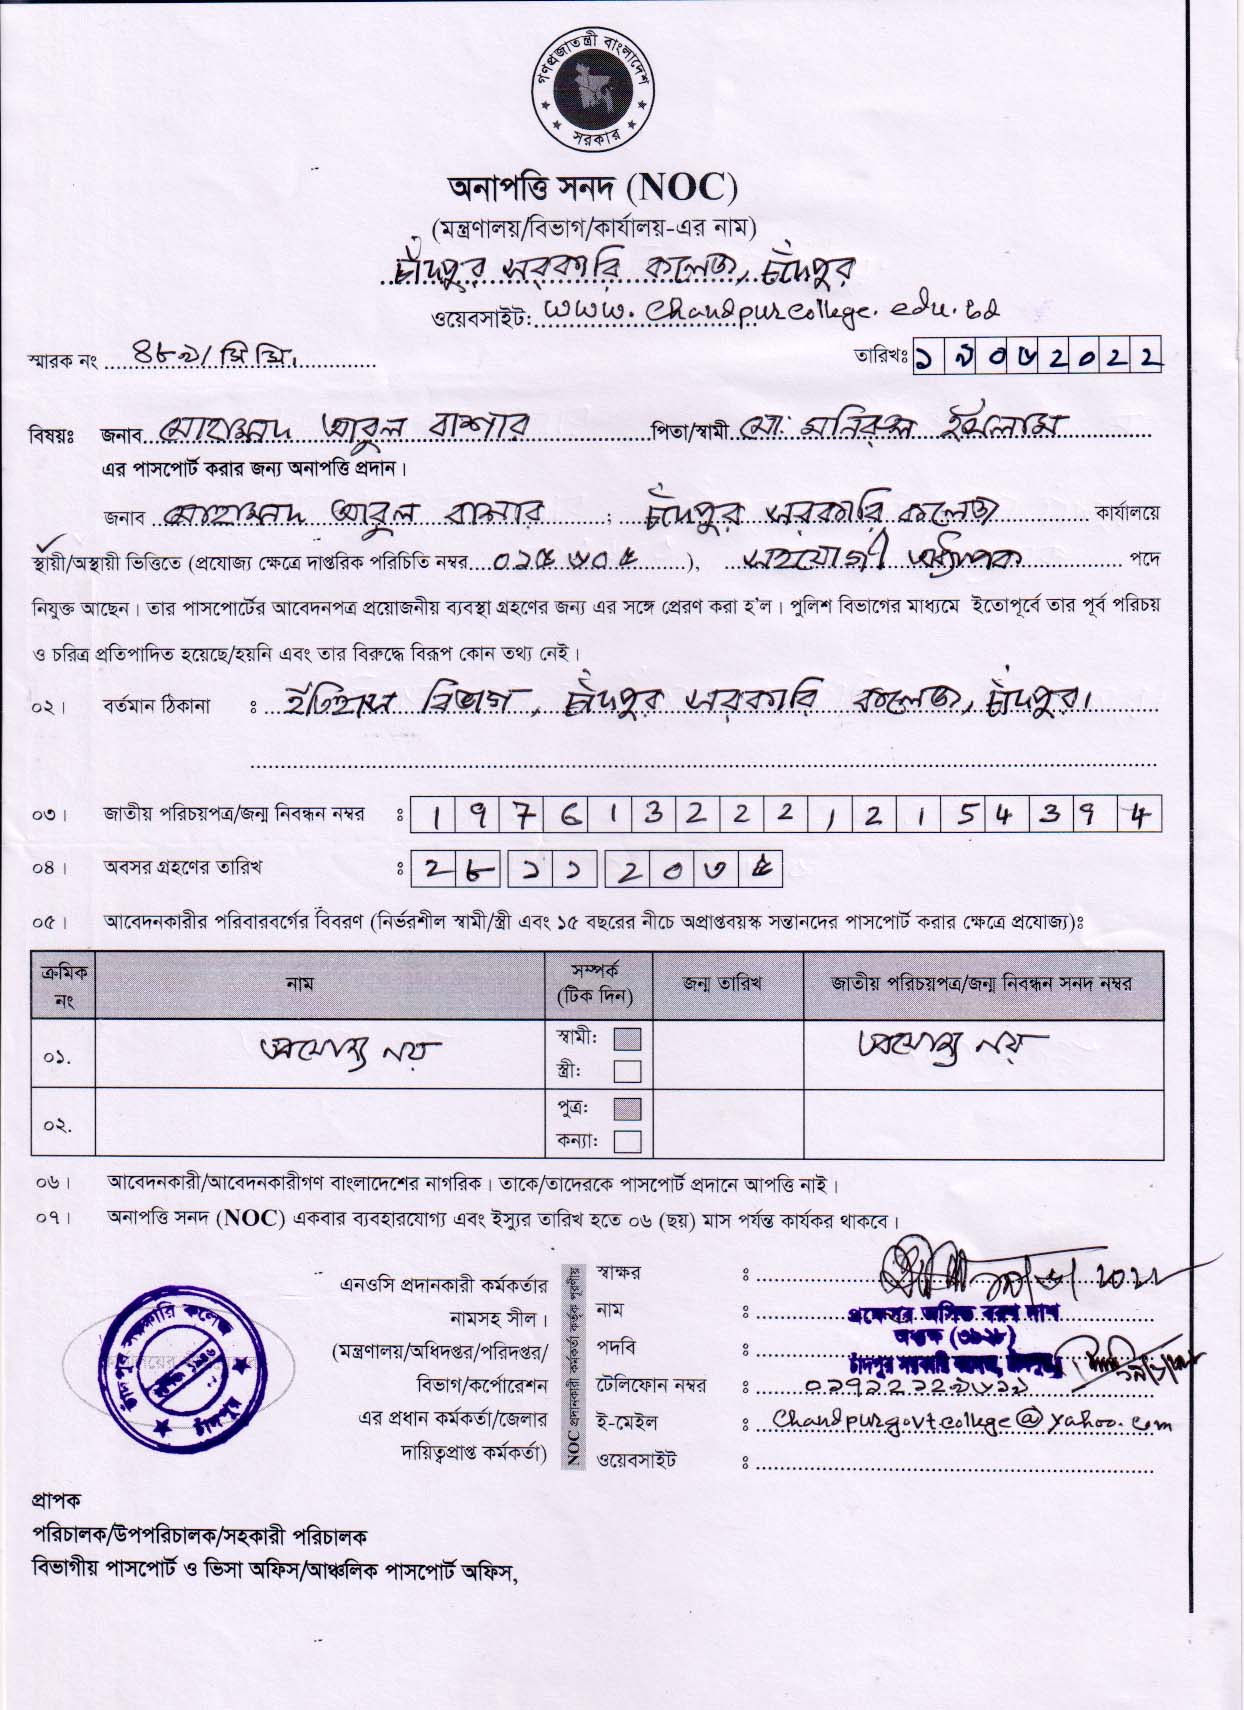 গণপ্রজাতন্ত্রী বাংলাদেশ
সরকার
অনাপত্তি সনদ (NOC)
(মন্ত্রণালয়/বিভাগ/কার্যালয়-এর নাম)
চাঁদপুর সরকারি কলেজ, চাঁদপুর
ওয়েবসাইট: www.chandpurcollege.edu.bd
স্মারক নং ৪৮৯/সি সি. তারিখঃ ১৯০৬2022
বিষয়ঃ জনাব মোহাম্মদ আবুল বাশার পিতা/স্বামী মো: মনিরুল ইসলাম
এর পাসপোর্ট করার জন্য অনাপত্তি প্রদান।
জনাব মোহাম্মদ আবুল বাশার ; চাঁদপুর সরকারি কলেজ কার্যালয়ে
স্থায়ী/অস্থায়ী ভিত্তিতে (প্রযোজ্য ক্ষেত্রে দাপ্তরিক পরিচিতি নম্বর ০১৫৬০৫), সহযোগী অধ্যাপক পদে
নিযুক্ত আছেন। তার পাসপোর্টের আবেদনপত্র প্রয়োজনীয় ব্যবস্থা গ্রহণের জন্য এর সঙ্গে প্রেরণ করা হ'ল। পুলিশ বিভাগের মাধ্যমে ইতোপূর্বে তার পূর্ব পরিচয়
ও চরিত্র প্রতিপাদিত হয়েছে/হয়নি এবং তার বিরুদ্ধে বিরূপ কোন তথ্য নেই।
০২। বর্তমান ঠিকানা ঃ ইতিহাস বিভাগ, চাঁদপুর সরকারি কলেজ, চাঁদপুর।
০৩। জাতীয় পরিচয়পত্র/জন্ম নিবন্ধন নম্বর ঃ 19761322212154394
০৪। অবসর গ্রহণের তারিখ ঃ 2৮ ১১ 20৩৫
০৫। আবেদনকারীর পরিবারবর্গের বিবরণ (নির্ভরশীল স্বামী/স্ত্রী এবং ১৫ বছরের নীচে অপ্রাপ্তবয়স্ক সন্তানদের পাসপোর্ট করার ক্ষেত্রে প্রযোজ্য)ঃ
ক্রমিক নং নাম সম্পর্ক (টিক দিন) জন্ম তারিখ জাতীয় পরিচয়পত্র/জন্ম নিবন্ধন সনদ নম্বর
০১. প্রযোজ্য নয় স্বামী: প্রযোজ্য নয়
স্ত্রী:
০২. পুত্র:
কন্যা:
০৬। আবেদনকারী/আবেদনকারীগণ বাংলাদেশের নাগরিক। তাকে/তাদেরকে পাসপোর্ট প্রদানে আপত্তি নাই।
০৭। অনাপত্তি সনদ (NOC) একবার ব্যবহারযোগ্য এবং ইস্যুর তারিখ হতে ০৬ (ছয়) মাস পর্যন্ত কার্যকর থাকবে।
চাঁদপুর সরকারি কলেজ
চাঁদপুর
এনওসি প্রদানকারী কর্মকর্তার
নামসহ সীল।
(মন্ত্রণালয়/অধিদপ্তর/পরিদপ্তর/
বিভাগ/কর্পোরেশন
এর প্রধান কর্মকর্তা/জেলার
দায়িত্বপ্রাপ্ত কর্মকর্তা)
NOC প্রদানকারী কর্মকর্তা কর্তৃক পূরণীয়
স্বাক্ষর ঃ
নাম ঃ প্রফেসর অসিত বরণ দাশ
অধ্যক্ষ
পদবি ঃ চাঁদপুর সরকারি কলেজ, চাঁদপুর
টেলিফোন নম্বর ঃ
ই-মেইল ঃ Chandpurgovt.college@yahoo.com
ওয়েবসাইট ঃ
প্রাপক
পরিচালক/উপপরিচালক/সহকারী পরিচালক
বিভাগীয় পাসপোর্ট ও ভিসা অফিস/আঞ্চলিক পাসপোর্ট অফিস,